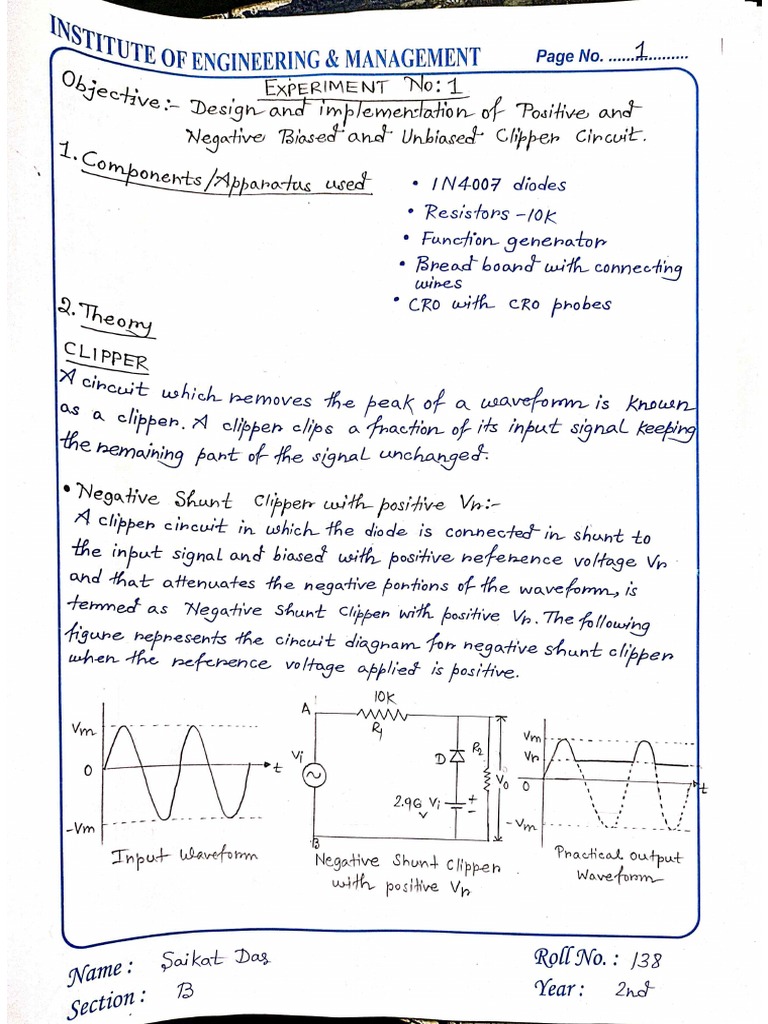 INSTITUTE OF ENGINEERING & MANAGEMENT
Page No. ......1.........
EXPERIMENT No: 1
Objective:- Design and implementation of Positive and
Negative Biased and Unbiased Clipper Circuit.
1. Components/Apparatus used
• 1N4007 diodes
• Resistors -10K
• Function generator
• Bread board with connecting
wires
• CRO with CRO probes
2. Theory
CLIPPER
A circuit which removes the peak of a waveform is known
as a clipper. A clipper clips a fraction of its input signal keeping
the remaining part of the signal unchanged.
• Negative Shunt Clipper with positive Vr:-
A clipper circuit in which the diode is connected in shunt to
the input signal and biased with positive reference voltage Vr
and that attenuates the negative portions of the waveform, is
termed as Negative Shunt Clipper with positive Vr. The following
figure represents the circuit diagram for negative shunt clipper
when the reference voltage applied is positive.
Vm
0
-Vm
t
Input Waveform
A
10K
R1
Vi
D
R2
Vo
2.96 Vi
V
+
-
B
Negative Shunt Clipper
with positive Vr
Vm
Vr
0
-Vm
t
Practical Output
Waveform
Name: Saikat Das
Roll No.: 138
Section: B
Year: 2nd